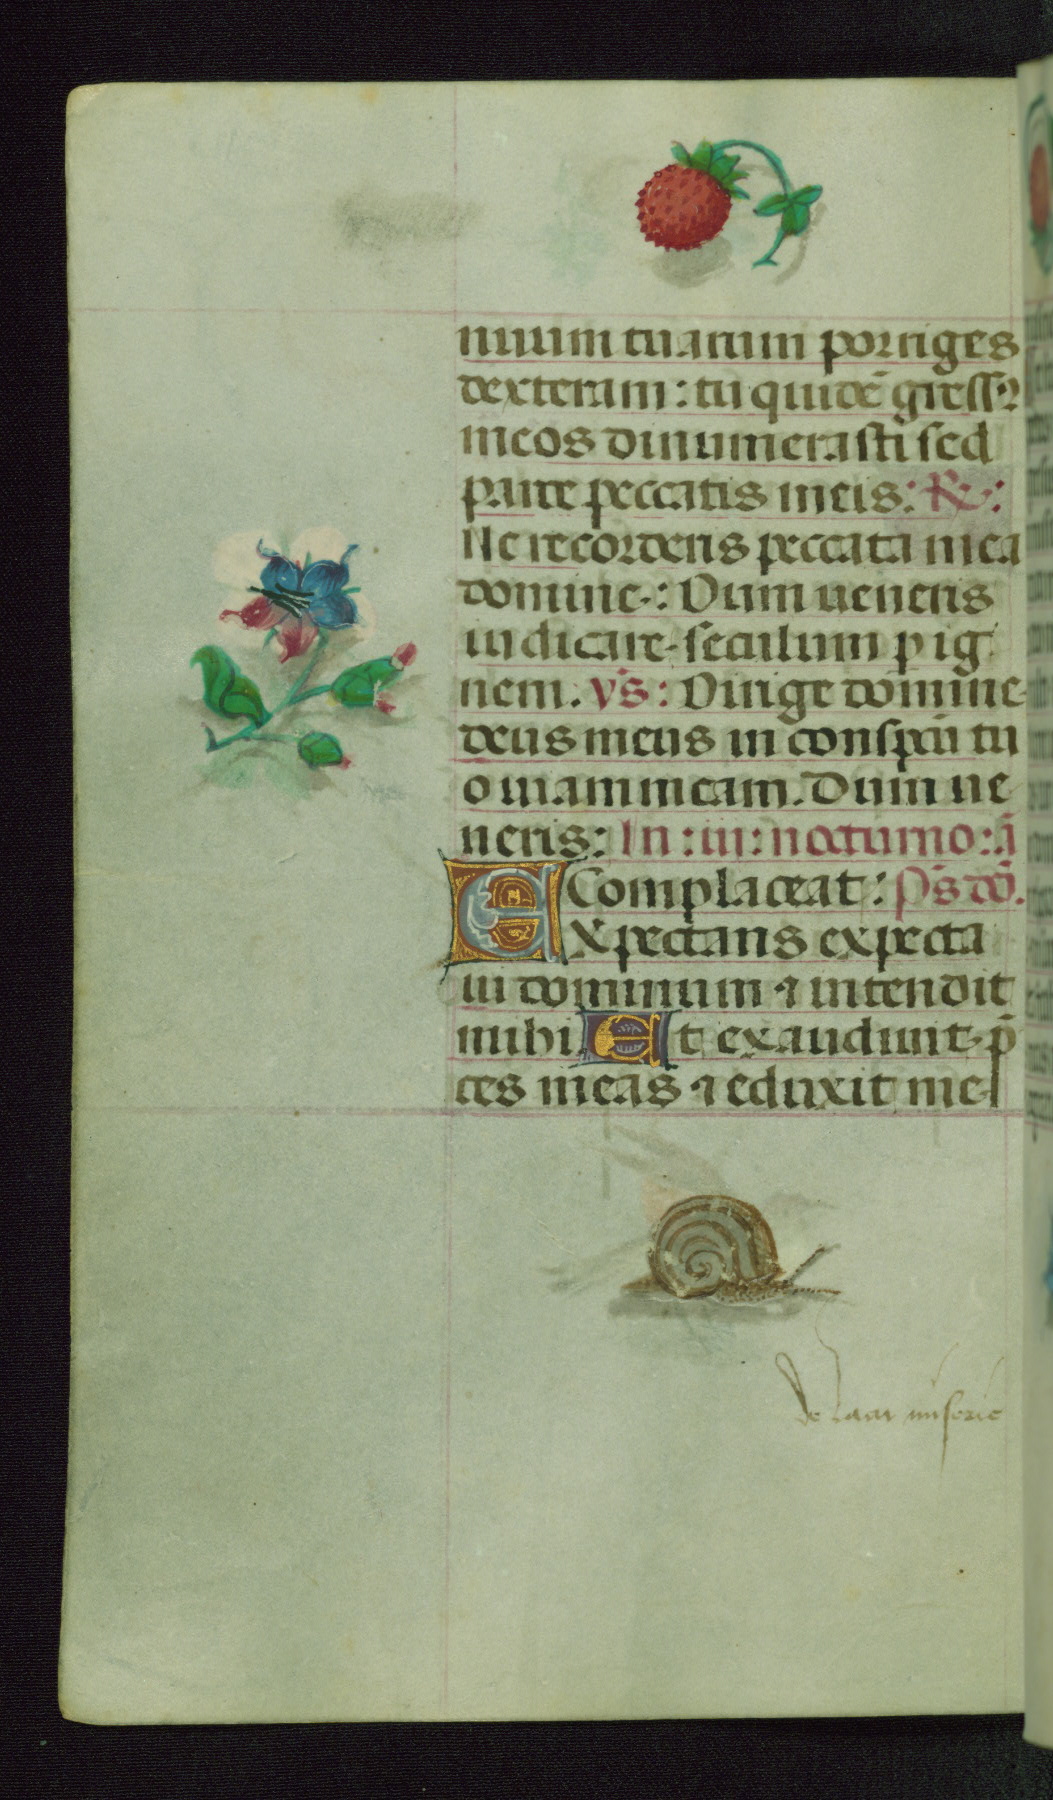 nuum tuarum porriges
dexteram: tu quidē gressꝰ
meos dinumerasti sed
parce peccatis meis: R̷:
Ne recorderis peccata mea
domine: Dum ueneris
iudicare seculum p ig
nem. vs̄: Dirige domine
deus meus in conspectu tu
o uiam meam. Dum ue
neris: In: iii: nocturno: ā
Complaceat: Ps̄ dd̄.
EXpectans expecta
ui dominum ⁊ intendit
mihi Et exaudiuit p̄
ces meas ⁊ eduxit me
de miserie